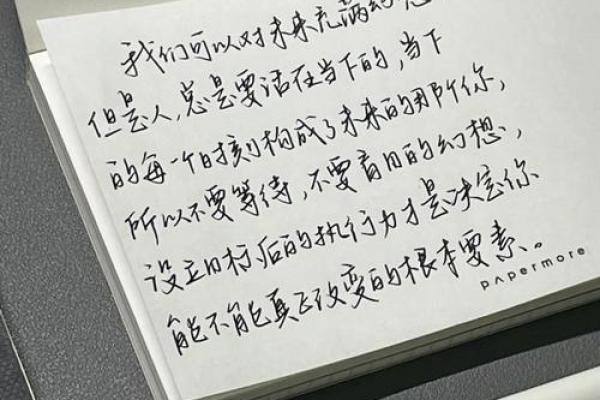 我们可以对未来充满幻想
但是人,总是要活在当下的,当下
的每一个时刻构成了未来的那个你,
所以不要等待,不要盲目的幻想,
设立目标后的执行力才是决定你
能不能真正改变的根本要素。
papermore